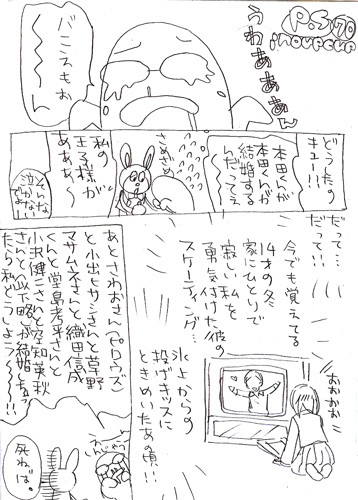 P.S 70
うわあぁあぁん
バニスもぉ
〜〜ん
どうしたの
キュー!!
本田くんが
本田くんが
結婚する
んだってぇ
さめざめ
私の
王子様が
あああ〜
そんな
泣かない
でよ
だって…
だって…!!
今でも覚えてる
14才の冬
家にひとりで
寂しい私を
勇気付けた彼の
スケーティング…
氷上からの
投げキッスに
ときめいたあの頃!!
あとさわおさん(ピロウズ)
と小出ヒサシさんと草野
マサムネさんと織田信成
くんと堂島孝平さんと
小沢健二さんと
さんと(以下略)が結婚し
たら私どうしよう〜〜!!
死ねば。